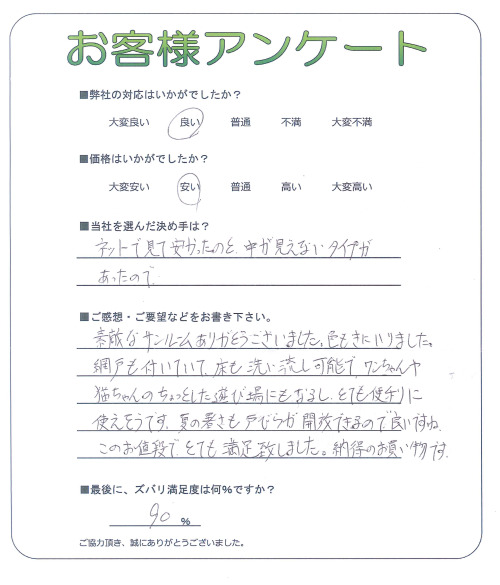 お客様アンケート
■弊社の対応はいかがでしたか？
大変良い 良い 普通 不満 大変不満
■価格はいかがでしたか？
大変安い 安い 普通 高い 大変高い
■当社を選んだ決め手は？
ネットで見て安かったのと、中が見えないタイプが
あったので
■ご感想・ご要望などをお書き下さい。
素敵なサンルームありがとうございました。色もきにいりました。
網戸も付いていて、床も洗い流し可能で、ワンちゃんや
猫ちゃんのちょっとした遊び場にもなるし、とても便利に
使えそうです。夏の暑さも戸びらが開放できるので良いですね。
このお値段で、とても満足致しました。納得のお買い物です。
■最後に、ズバリ満足度は何％ですか？
90 %
ご協力頂き、誠にありがとうございました。